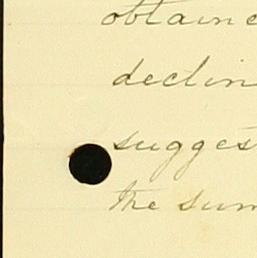 obtain
declin
sugges
the sum